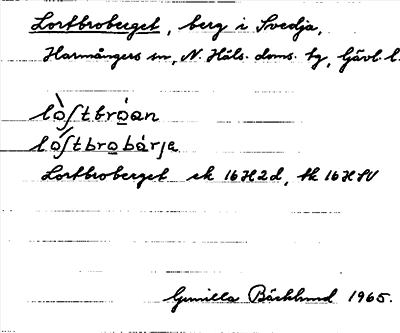 Lortbroberget, berg i Svedja,
Harmångers sn, N. Häls. doms. tg, Gävl. l.
lo̠ʃtbro̠an
lo̠ʃtbro̠bárja
Lortbroberget ek 16H2d, tk 16HSV
Gunilla Bäcklund 1965.